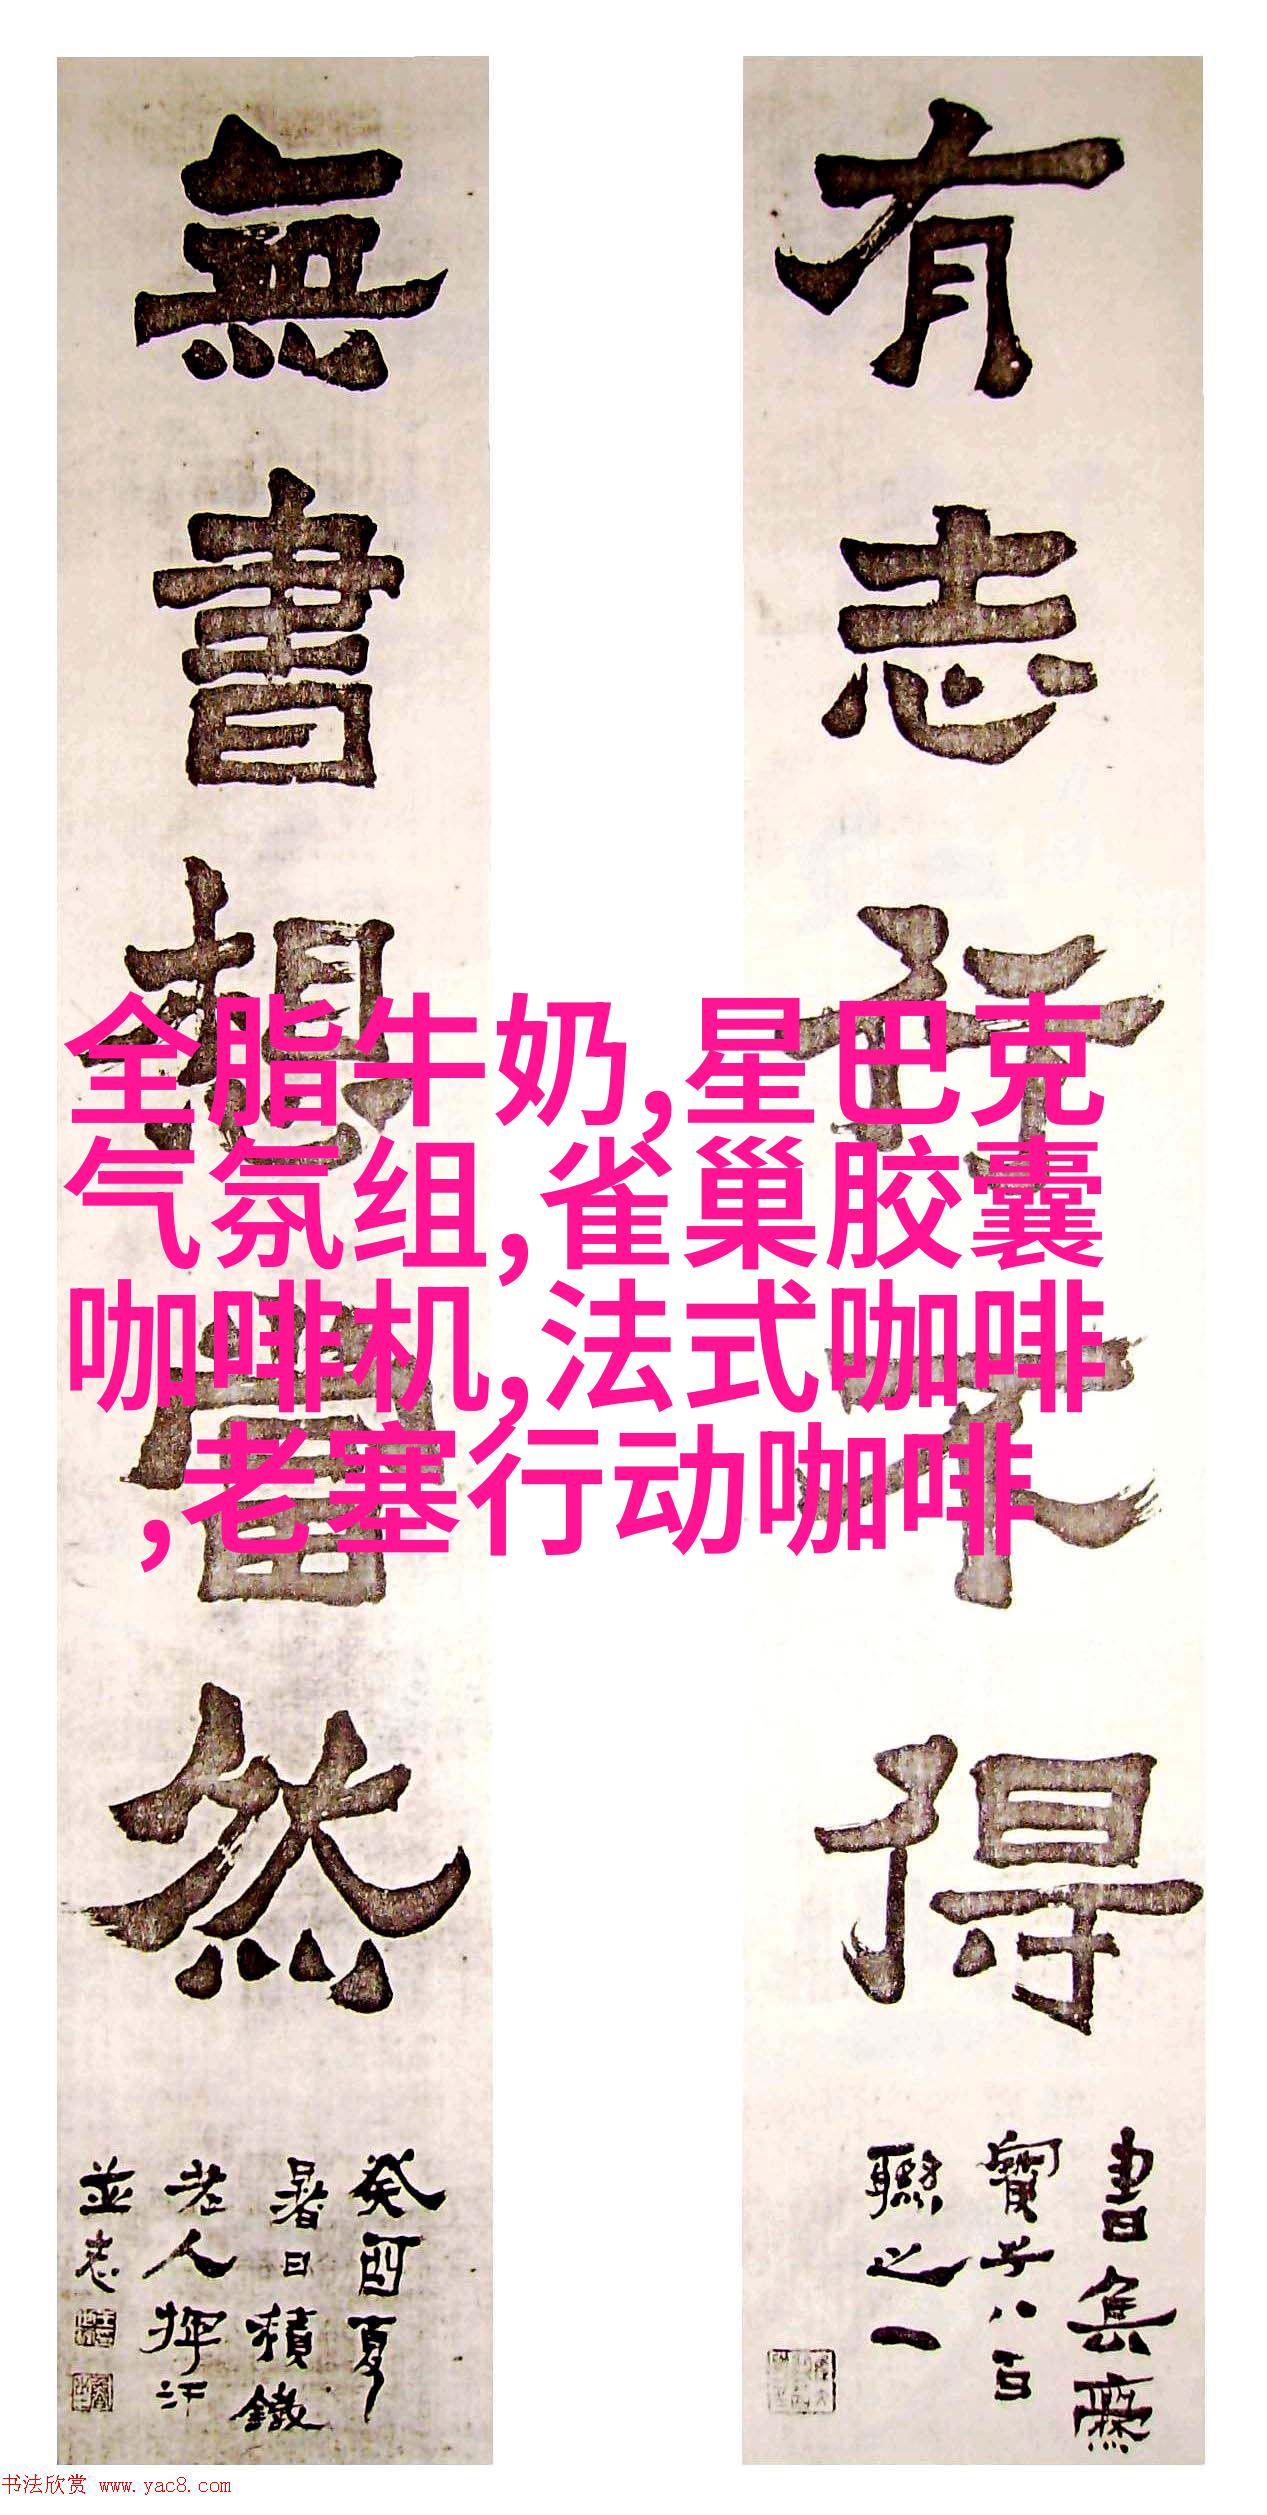 有志行不得
書集齋
寶子八百
聯之一
無書想當然
癸酉夏
暑日積鐵
老人揮汗
並志
全脂牛奶,星巴克
气氛组,雀巢胶囊
咖啡机,法式咖啡
,老塞行动咖啡
书法欣赏 www.yac8.com